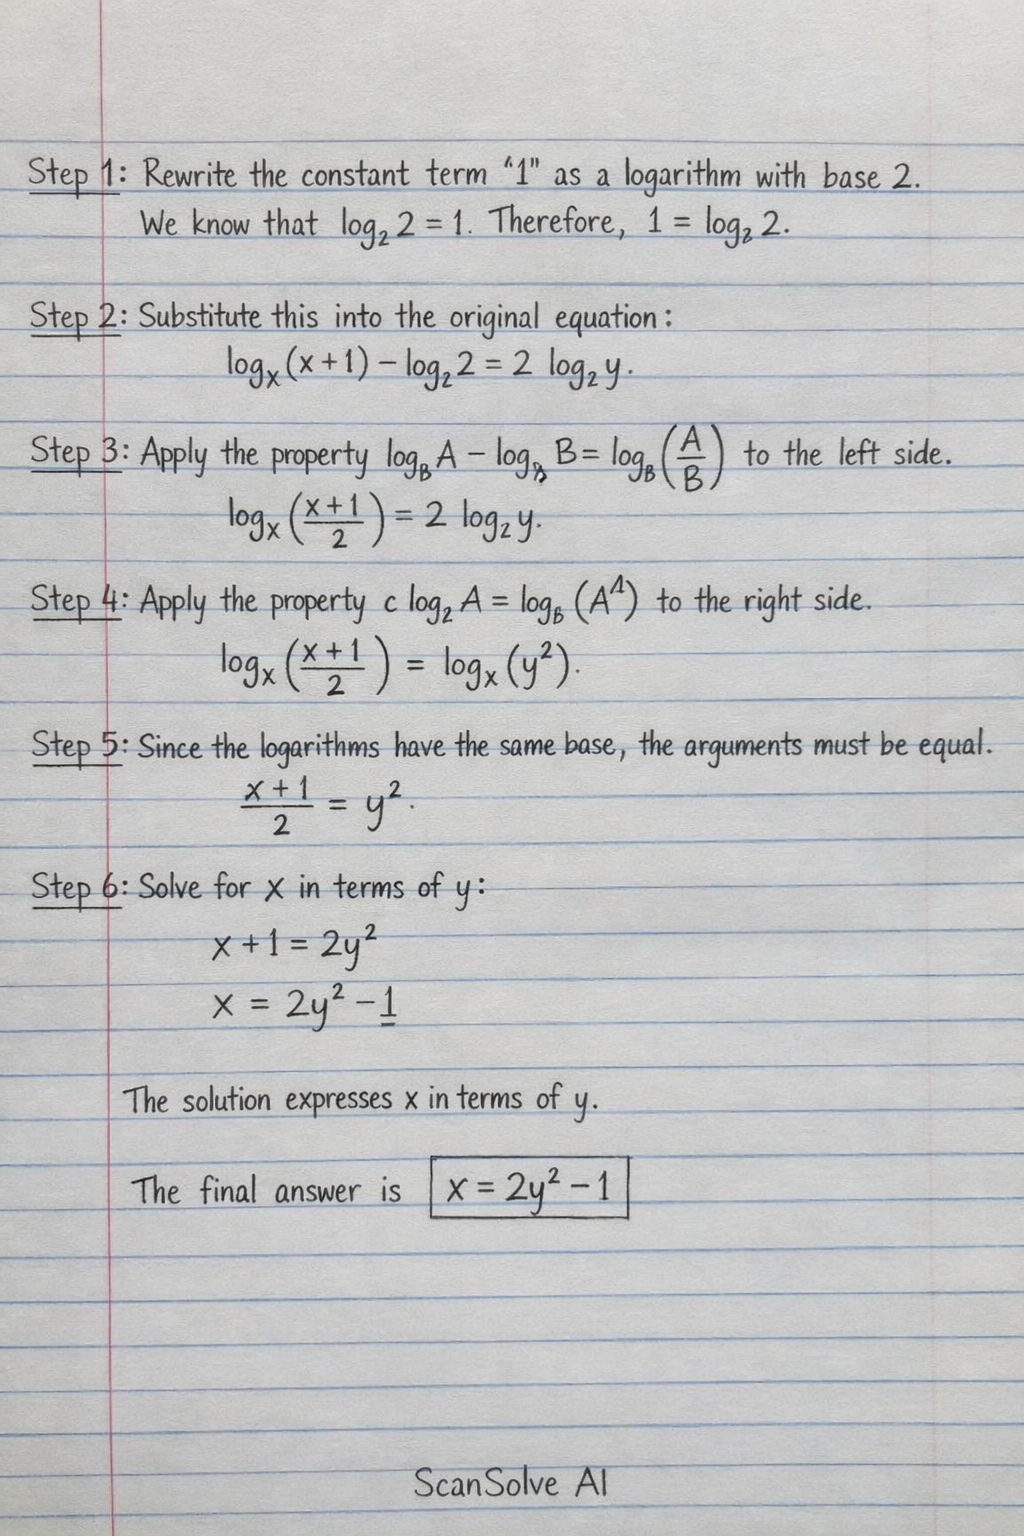 Step 1: Rewrite the constant term “1” as a logarithm with base 2.
We know that log₂ 2 = 1. Therefore, 1 = log₂ 2.
Step 2: Substitute this into the original equation:
logₓ (x + 1) − log₂ 2 = 2 log₂ y.
Step 3: Apply the property log_B A − log_B B = log_B (A/B) to the left side.
logₓ ((x + 1)/2) = 2 log₂ y.
Step 4: Apply the property c log₂ A = log_B (A^A) to the right side.
logₓ ((x + 1)/2) = logₓ (y²).
Step 5: Since the logarithms have the same base, the arguments must be equal.
(x + 1)/2 = y².
Step 6: Solve for x in terms of y:
x + 1 = 2y²
x = 2y² − 1
The solution expresses x in terms of y.
The final answer is x = 2y² − 1
ScanSolve AI